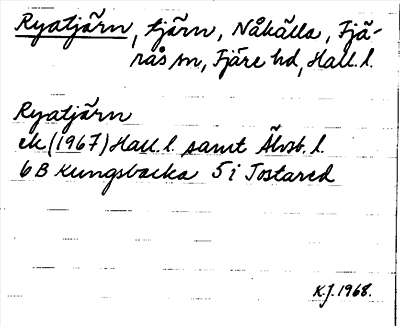 Ryatjärn, tjärn, Nåkälla, Fjä-
rås sn, Fjäre hd, Hall. l.
Ryatjärn
ek (1967) Hall. l. samt Älvsb. l.
6B Kungsbacka 5i Tostared
K.J. 1968.